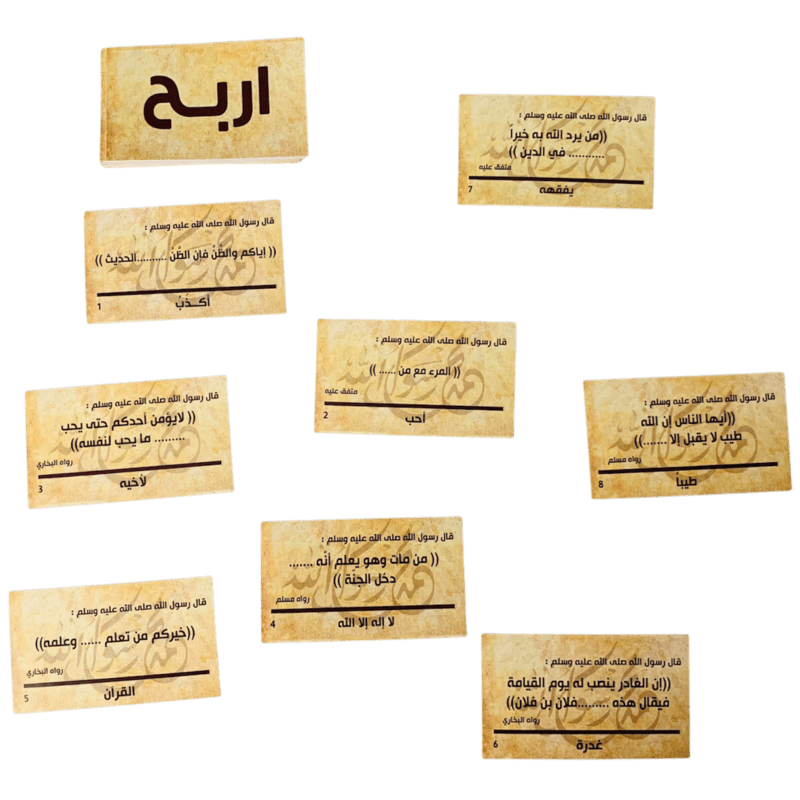 اربح
قال رسول الله صلى الله عليه وسلم :
(( إياكم والظَّنُّ فإن الظَّنَّ ..........الحديث ))
أكــذَبُ
1
قال رسول الله صلى الله عليه وسلم :
(( المرء مع من ...... ))
متفق عليه
أحب
2
قال رسول الله صلى الله عليه وسلم :
(( لايؤمن أحدكم حتى يحب
......... ما يحب لنفسه))
رواه البخاري
لأخيه
3
قال رسول الله صلى الله عليه وسلم :
(( من مات وهو يعلم أنَّه .......
دخل الجنَّة ))
رواه مسلم
لا إله إلا الله
4
قال رسول الله صلى الله عليه وسلم :
((خيركم من تعلم ...... وعلمه))
رواه البخاري
القرآن
5
قال رسول الله صلى الله عليه وسلم :
((إن الغادر ينصب له يوم القيامة
فيقال هذه .........فلان بن فلان))
رواه البخاري
غدرة
6
قال رسول الله صلى الله عليه وسلم :
((من يرد الله به خيراً
........... في الدين ))
متفق عليه
يفقهه
7
قال رسول الله صلى الله عليه وسلم :
((أيها الناس إن الله
طيب لا يقبل إلا .......))
رواه مسلم
طيباً
8